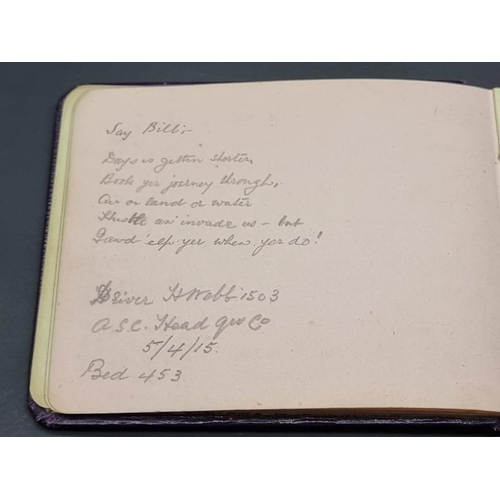 Say Bill;-
Days is gettin shorter,
Book yer journey through,
On land or water
Hustle an' invade us - but
Gawd 'elp yer when yer do!
Driver H Webb 1503
A.S.C. Head qrs Co
5/4/15.
Bed 453